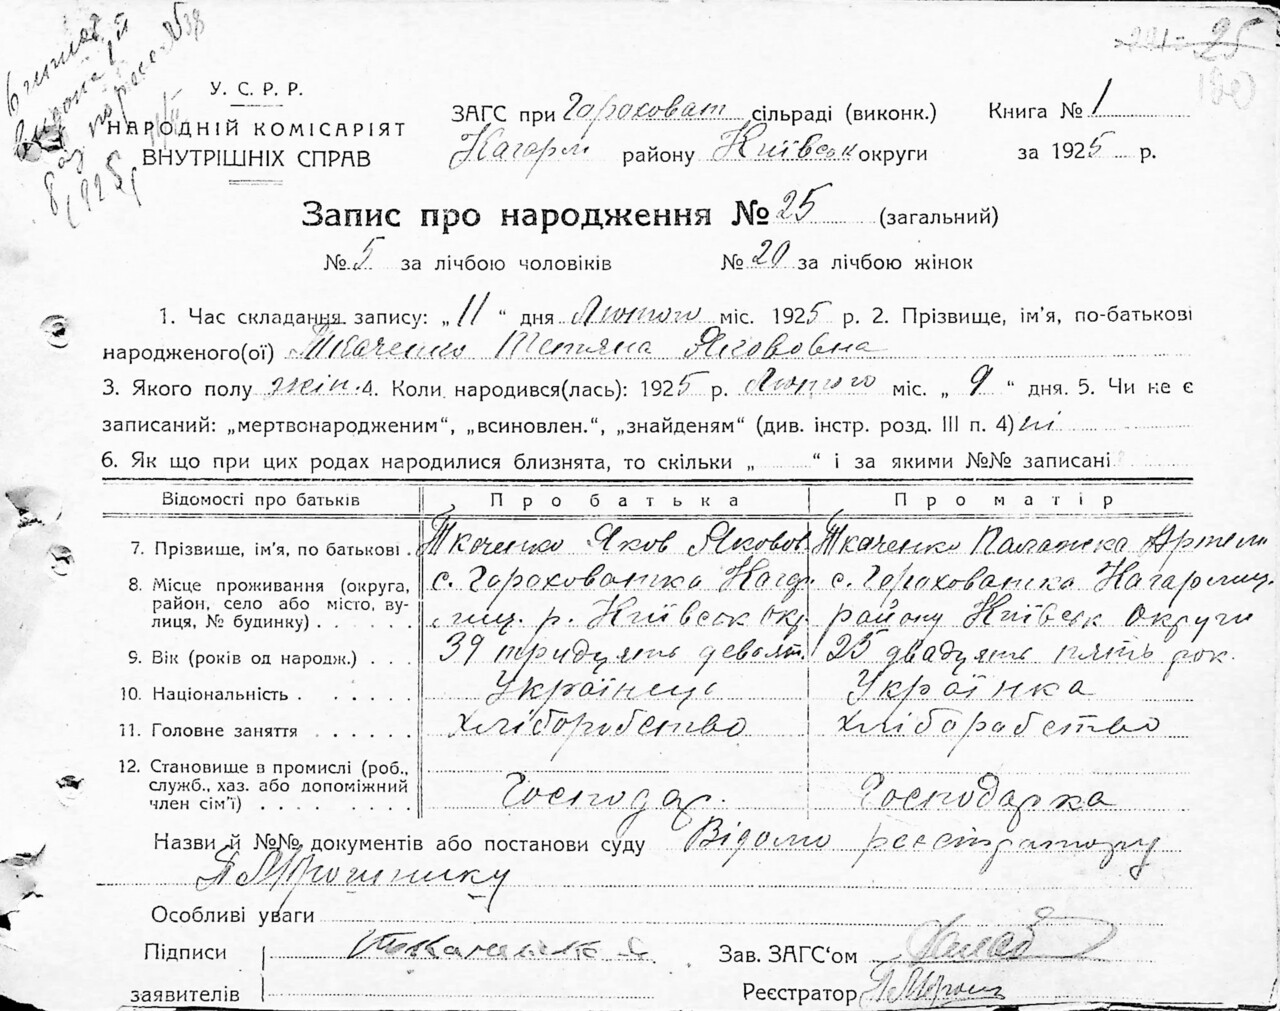 25
У. С. Р. Р.
НАРОДНІЙ КОМІСАРІЯТ
ВНУТРІШНІХ СПРАВ
ЗАГС при Гороховат сільраді (виконк.)
Кагарл району Київськ округи
Книга № 1
за 1925 р.
Запис про народження № 25 (загальний)
№ 5 за лічбою чоловіків № 20 за лічбою жінок
1. Час складання запису: „ 11 “ дня Лютого міс. 1925 р. 2. Прізвище, ім'я, по-батькові
народженого(ої) Ткаченко Тетяна Яковівна
3. Якого полу жін. 4. Коли народився(лась): 1925 р. Лютого міс. „ 9 “ дня. 5. Чи не є
записаний: „мертвонародженим“, „всиновлен.“, „знайденям“ (див. інстр. розд. III п. 4) ні
6. Як що при цих родах народилися близнята, то скільки „ “ і за якими №№ записані
Відомості про батьків Про батька Про матір
7. Прізвище, ім'я, по батькові . Ткаченко Яков Яковов Ткаченко Палажка Артем
8. Місце проживання (округа, район, село або місто, вулиця, № будинку) . . . . . с. Горохованка Кагар
лиц. р. Київськ окр. с. Горохованка Кагарлиц.
району Київськ Округи
9. Вік (років од народж.) . . . 39 тридцять девять. 25 двадцять пять рок.
10. Національність . . . . . . Українець Українка
11. Головне заняття . . . . . . хліборобство хліборобство
12. Становище в промислі (роб., служб., хаз. або допоміжний член сім'ї) . . . . . . . . Господар. Господарка
Назви й №№ документів або постанови суду Відомо реєстратору
П Мірошнику
Особливі уваги
Підписи
заявителів
Ткаченко Я
Зав. ЗАГС'ом
Реєстратор П Мірош